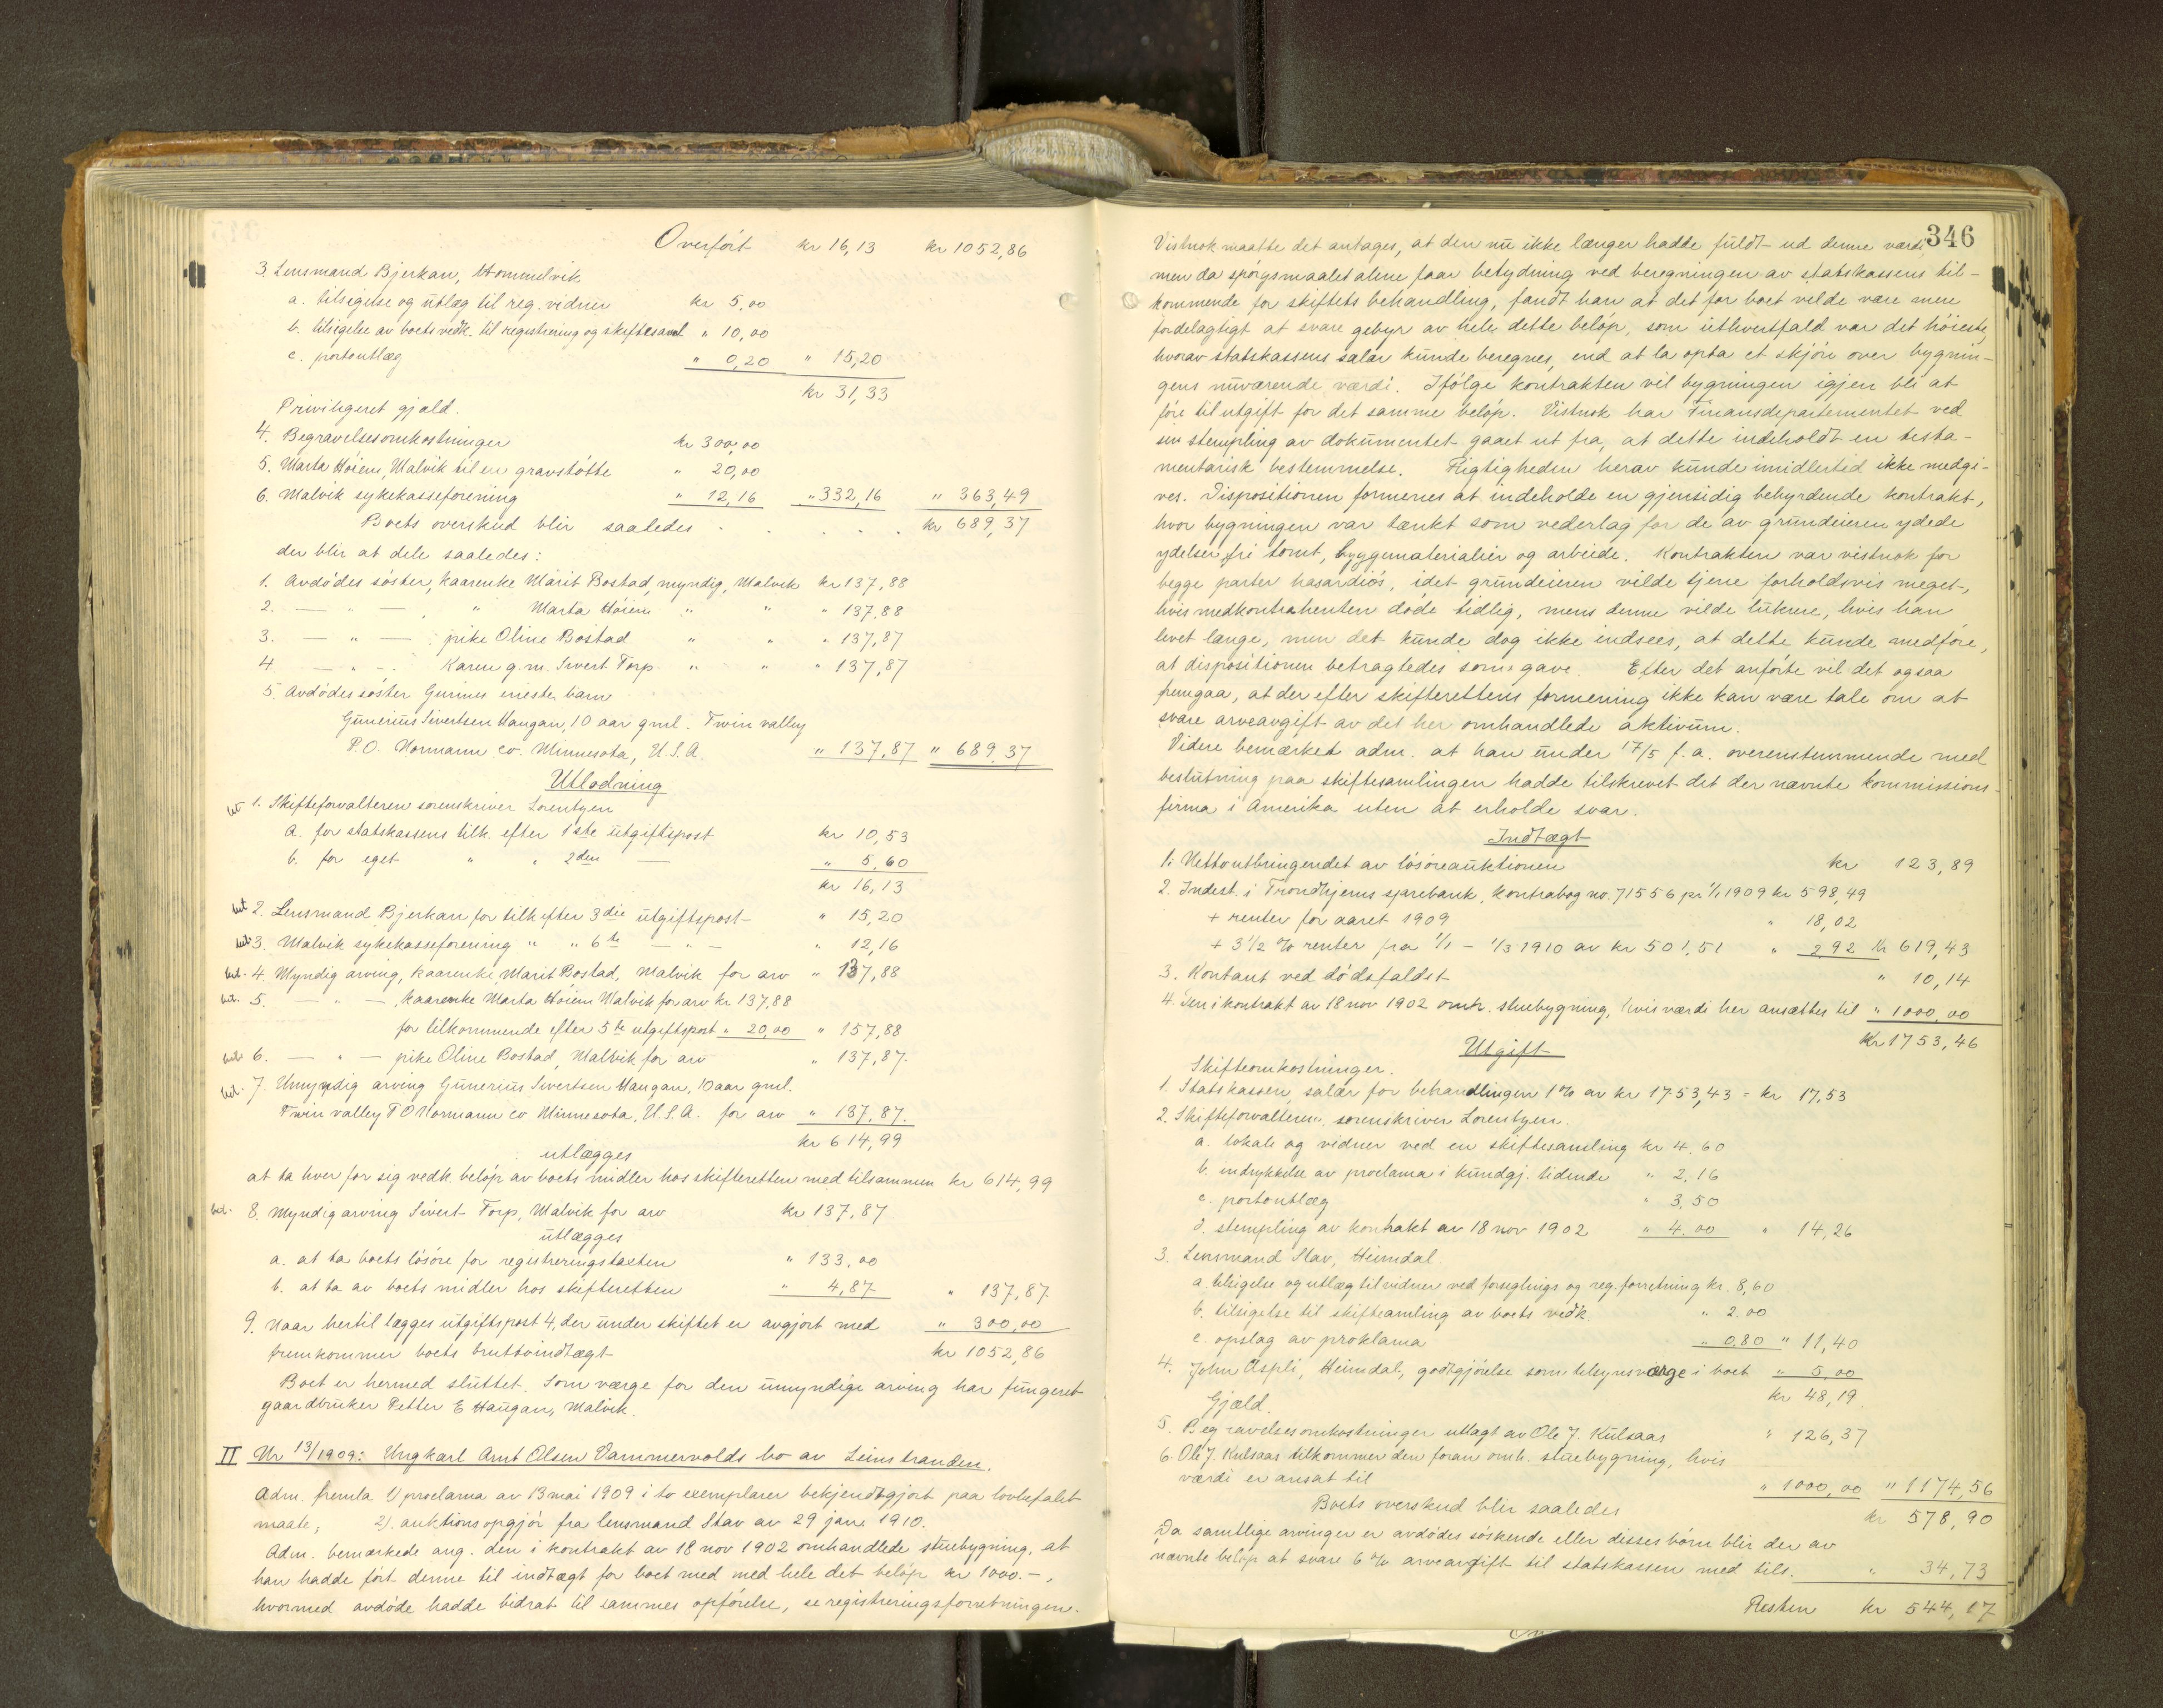 Overført kr 16,13 kr 1052,86
3. Lensmand Bjerkan, Hommelvik
a. tilsigelse og utlæg til reg. vidner kr 5,00
b. tilsigelse av boets vedk. til registrering og skiftesaml " 10,00
c. portoutlæg " 0,20 " 15,20
kr 31,33
Priviligeret gjæld.
4. Begravelsesomkostninger kr 300,00
5. Marta Høiem, Malvik til en gravstøtte " 20,00
6. Malvik sykekasseforening " 12,16 " 332,16 " 363,49
Boets overskud blir saaledes . . . . kr 689,37
der blir at dele saaledes:
1. Avdødes søster, kaarenke Marit Bostad, myndig, Malvik kr 137,88
2. — " — , " Marta Høiem " " " 137,88
3. — " — : pike Oline Bostad " " " 137,87
4. — " — . Karen g.m. Sivert Torp " " " 137,87
5. Avdødes søster Gurines eneste barn
Gunerius Sivertsen Haugan, 10 aar gml. Twin valley
P.O. Normann co. Minnesota, U.S.A. " 137,87 " 689,37
Utlodning
bet 1. Skifteforvalteren sorenskriver Lorentzen
a. for statskassens tilk. efter 1ste utgiftspost kr 10,53
b. for eget " " 2den — " 5,60
kr 16,13
bet 2. Lensmand Bjerkan for tilk efter 3die utgiftspost " 15,20
bet 3. Malvik sykekasseforening " " 6te — " — " 12,16
bet. 4. Myndig arving, kaarenke Marit Bostad, Malvik for arv " 137,88
bet. 5. — " — , kaarenke Marta Høiem Malvik for arv kr 137,88
for tilkommende efter 5te utgiftspost " 20,00 " 157,88
bet. 6. — " — pike Oline Bostad, Malvik for arv " 137,87.
bet. 7. Umyndig arving Gunerius Sivertsen Haugan, 10 aar gml.
Twin valley P O Normann co Minnesota, U.S.A. for arv " 137,87.
kr 614,99
utlægges
at ta hver for sig vedk. beløp av boets midler hos skifteretten med tilsammen kr 614,99
bet. 8. Myndig arving Sivert Torp, Malvik for arv kr 137,87
utlægges
a. at ta boets løsøre for registreringstaksten " 133,00
b. at ta av boets midler hos skifteretten " 4,87 " 137,87
9. Naar hertil lægges utgiftspost 4, der under skiftet er avgjort med " 300,00
fremkommer boets bruttoindtægt kr 1052,86
Boet er hermed sluttet. Som værge for den umyndige arving har fungeret
gaardbruker Petter E Haugan, Malvik.
II Nr 13/1909: Ungkarl Arnt Olsen Vammervolds bo av Leinstranden.
Adm. fremla 1) proclama av 13 mai 1909 i to exemplarer bekjendtgjort paa lovbefalet
maate; 2). auktionsopgjør fra lensmand Stav av 29 jan. 1910.
Adm. bemærkede ang. den i kontrakt av 18 nov 1902 omhandlede stuebygning, at
han hadde ført denne til indtægt for boet med med hele det beløp kr 1000.-,
hvormed avdøde hadde bidrat til sammes opførelse, se registreringsforretningen.
346
Vistnok maatte det antages, at den nu ikke længer hadde fuldt ud denne værdi
men da spørgsmaalet alene faar betydning ved beregningen av statskassens til-
kommende for skiftets behandling, fandt han at det for boet vilde være mere
fordelagtigt at svare gebyr av hele dette beløp, som ithvertfald var det høieste,
hvorav statskassens salær kunde beregnes, end at la opta et skjøn over bygnin-
gens nuværende værdi. Ifølge kontrakten vil bygningen igjen bli at
føre til utgift for det samme beløp. Vistnok har Finansdepartementet ved
sin stempling av dokumentet gaaet ut fra, at dette indeholdt en testa-
mentarisk bestemmelse. Rigtigheden herav kunde imidlertid ikke medgi-
ves. Dispositionen formenes at indeholde en gjensidig bebyrdende kontrakt,
hvor bygningen var tænkt som vederlag for de av grundeieren ydede
ydelser, fri tomt, byggematerialier og arbeide. Kontrakten var vistnok for
begge parter hasardiøs, idet grundeieren vilde tjene forholdsvis meget,
hvis medkontrahenten døde tidlig, mens denne vilde lukrere, hvis han
levet længe, men det kunde dog ikke indsees, at dette kunde medføre,
at dispositionen betragtedes som gave. Efter det anførte vil det ogsaa
fremgaa, at der efter skifterettens formening ikke kan være tale om at
svare arveavgift av det her omhandlede aktivum.
Videre bemærket adm. at han under 17/5 f.a. overenstemmende med
beslutning paa skiftesamlingen hadde tilskrevet det der nævnte kommissions-
firma i Amerika uten at erholde svar.
Indtægt
1. Nettoutbringendet av løsøreauktionen kr 123,89
2. Indest. i Trondhjems sparebank, kontrabog no. 71556 pr 1/1 1909 kr 598,49
+ renter for aaret 1909 " 18,02
+ 3 1/2 % renter fra 1/1 - 1/3 1910 av kr 501,51 " 2 92 kr 619,43
3. Kontant ved dødsfaldet " 10,14
4. Den i kontrakt av 18 nov 1902 omh. stuebygning, hvis værdi her ansættes til " 1000,00
kr 1753,46
Utgift
Skifteomkostninger.
1. Statskassen, salær for behandlingen 1% av kr 1753,43 = kr 17,53
2. Skifteforvalteren, sorenskriver Lorentzen.
a. lokale og vidner ved en skiftesamling kr 4.60
b. indrykkelse av proclama i kundgj. tidende " 2,16
c. portoutlæg " 3,50
d. stempling av kontrakt av 18 nov 1902 " 4.00 " 14,26
3. Lensmand Stav, Heimdal.
a. tilsigelse og utlæg til vidner ved forseglings og reg. forretning kr. 8,60
b. tilsigelse til skiftesamling av boets vedk. " 2.00
c. opslag av proklama " 0.80 " 11,40
4. John Aspli, Heimdal, godtgjørelse som tilsynsværge i boet " 5,00
kr 48,19
Gjæld.
5. Begravelsesomkostninger utlagt av Ole J. Kulsaas " 126,37
6. Ole J. Kulsaas tilkommer den foran omh. stuebygning, hvis
værdi er ansat til " 1000,00 " 1174,56
Boets overskud blir saaledes kr 578,90
Da samtlige arvinger er avdødes søskende eller disses børn blir der av
nævnte beløp at svare 6 % arveavgift til statskassen med tils. " 34,73
Resten kr 544,17